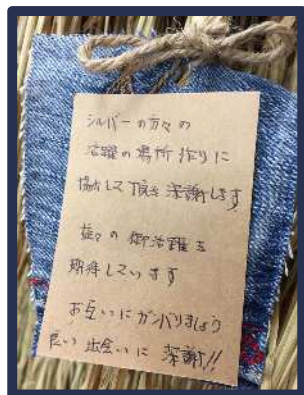 シルバーの方々の
活躍の場所作りに
協力して頂き深謝します
益々の御活躍を
期待しています
お互いにガンバりましょう
良い出会いに深謝!!